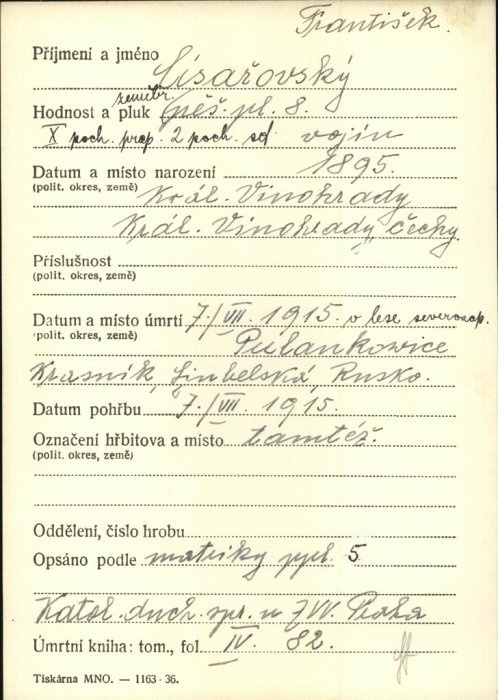 František.
Příjmení a jméno Císařovský
zeměbr.
Hodnost a pluk pěš. pl. 8.
X poch. prap. 2 poch. sd vojín
Datum a místo narození 1895.
(polit. okres, země) Král. Vinohrady
Král. Vinohrady, Čechy
Příslušnost
(polit. okres, země)
Datum a místo úmrtí 7./VII. 1915 v lese severozáp.
(polit. okres, země) Pulankowice
Krasnik, Linbelská, Rusko.
Datum pohřbu 7./VII. 1915.
Označení hřbitova a místo tamtéž.
(polit. okres, země)
Oddělení, číslo hrobu
Opsáno podle matriky ppl. 5
Katol. duch. spr. u ZVV. Praha
Úmrtní kniha: tom., fol. IV. 82.
Tiskárna MNO. — 1163-36.